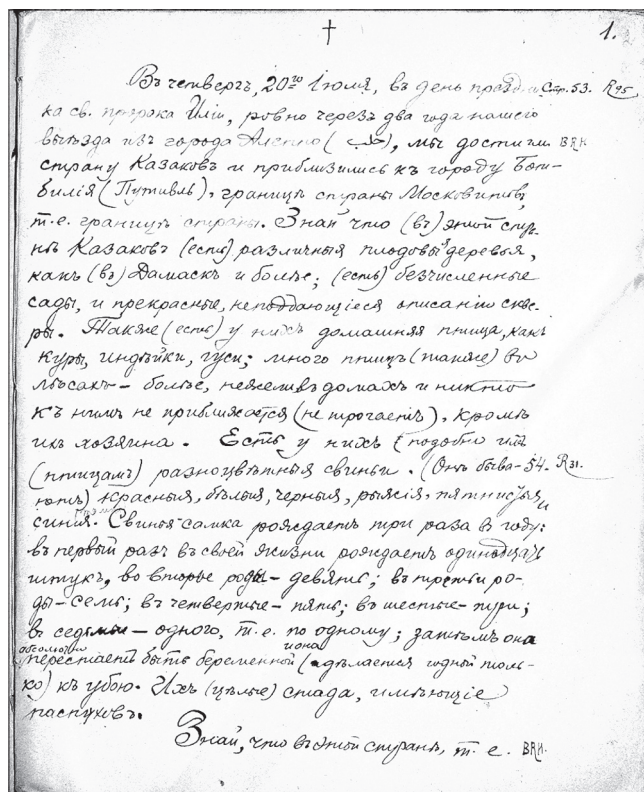 1.
Въ четвергъ, 20го Iюля, въ день празд- Стр. 53. R95
ка св. пророка Илiи, ровно черезъ два года нашего
выѣзда изъ города Алеппо (حلب), мы достигли ВЯИ
страну Казаковъ и приблизились къ городу Боти-
билiя (Путивль), границъ страны Московитовъ,
т. е. границъ страны. Знай что (въ) этой стра-
нѣ Казаковъ (есть) различныя плодовыя деревья,
какъ (въ) Дамаскѣ и болѣе; (есть) безчисленные
сады, и прекрасные, неподдающiеся описанiю скве-
ры. Также (есть) у нихъ домашняя птица, какъ
куры, индѣйки, гуси; много птицъ (также) въ
лѣсахъ – болѣе, нежели въ домахъ и никто
къ нимъ не приближается (не трогаетъ), кромѣ
ихъ хозяина. Есть у нихъ (подобно имъ
(птицамъ) разноцвѣтныя свиньи. (Онѣ быва- 54. R31.
ютъ) красныя, бѣлыя, черныя, рыжiя, пятнистыя и
синiя. Свинья самка рождаетъ три раза въ году:
въ первый разъ въ своей жизни рождаетъ одиннадцать
штукъ, во вторые роды – девять; въ третьи ро-
ды – семь; въ четвертые – пять; въ шестые – три;
въ седьмые – одного, т. е. по одному; затѣмъ она
абсолютно
перестаетъ быть беременной (и она дѣлается годной толь-
ко) къ убою. Ихъ (цѣлые) стада, имѣющiе
пастуховъ.
Знай, что въ этой странѣ, т. е. ВЯИ.